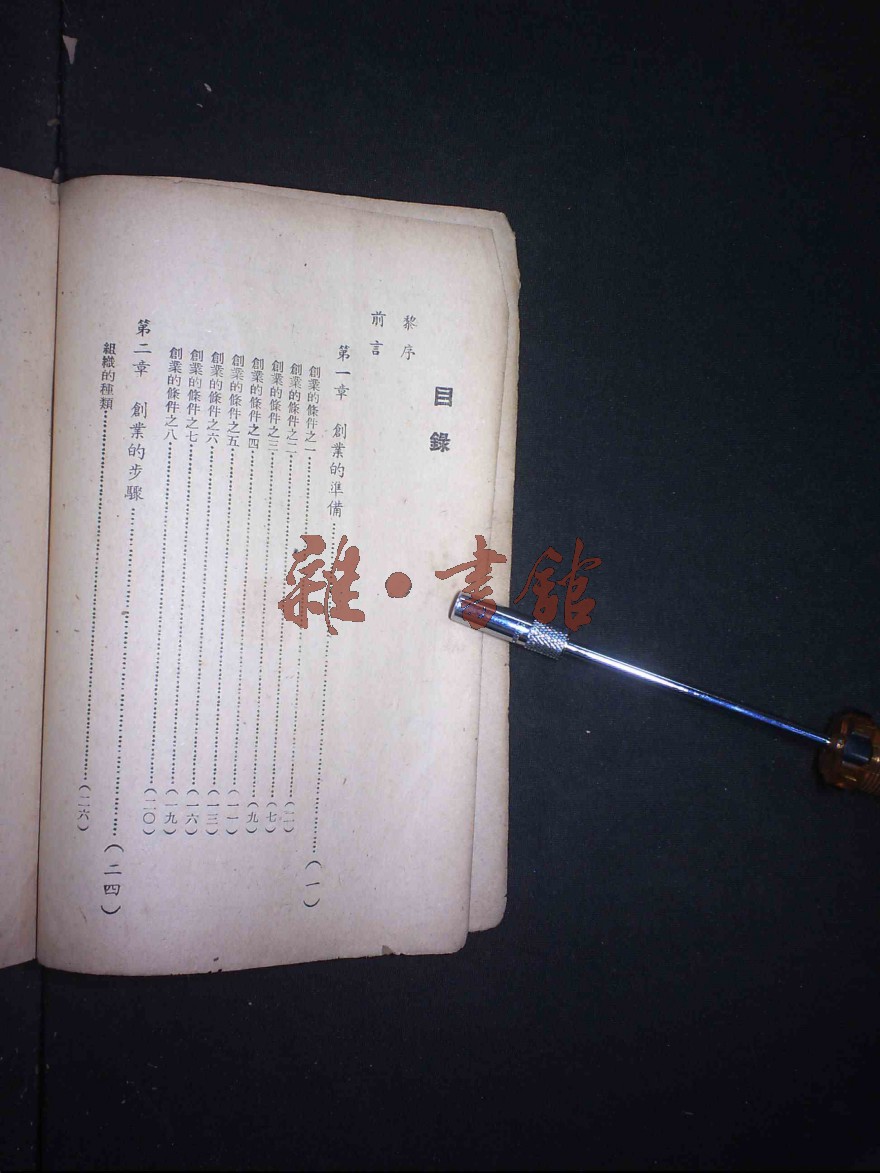 目錄
黎序
前言
第一章　創業的準備……………（一）
創業的條件之一……………（二）
創業的條件之二……………（七）
創業的條件之三……………（九）
創業的條件之四……………（一一）
創業的條件之五……………（一三）
創業的條件之六……………（一六）
創業的條件之七……………（一九）
創業的條件之八……………（二〇）
第二章　創業的步驟……………（二四）
組織的種類……………（二六）
雜・書館